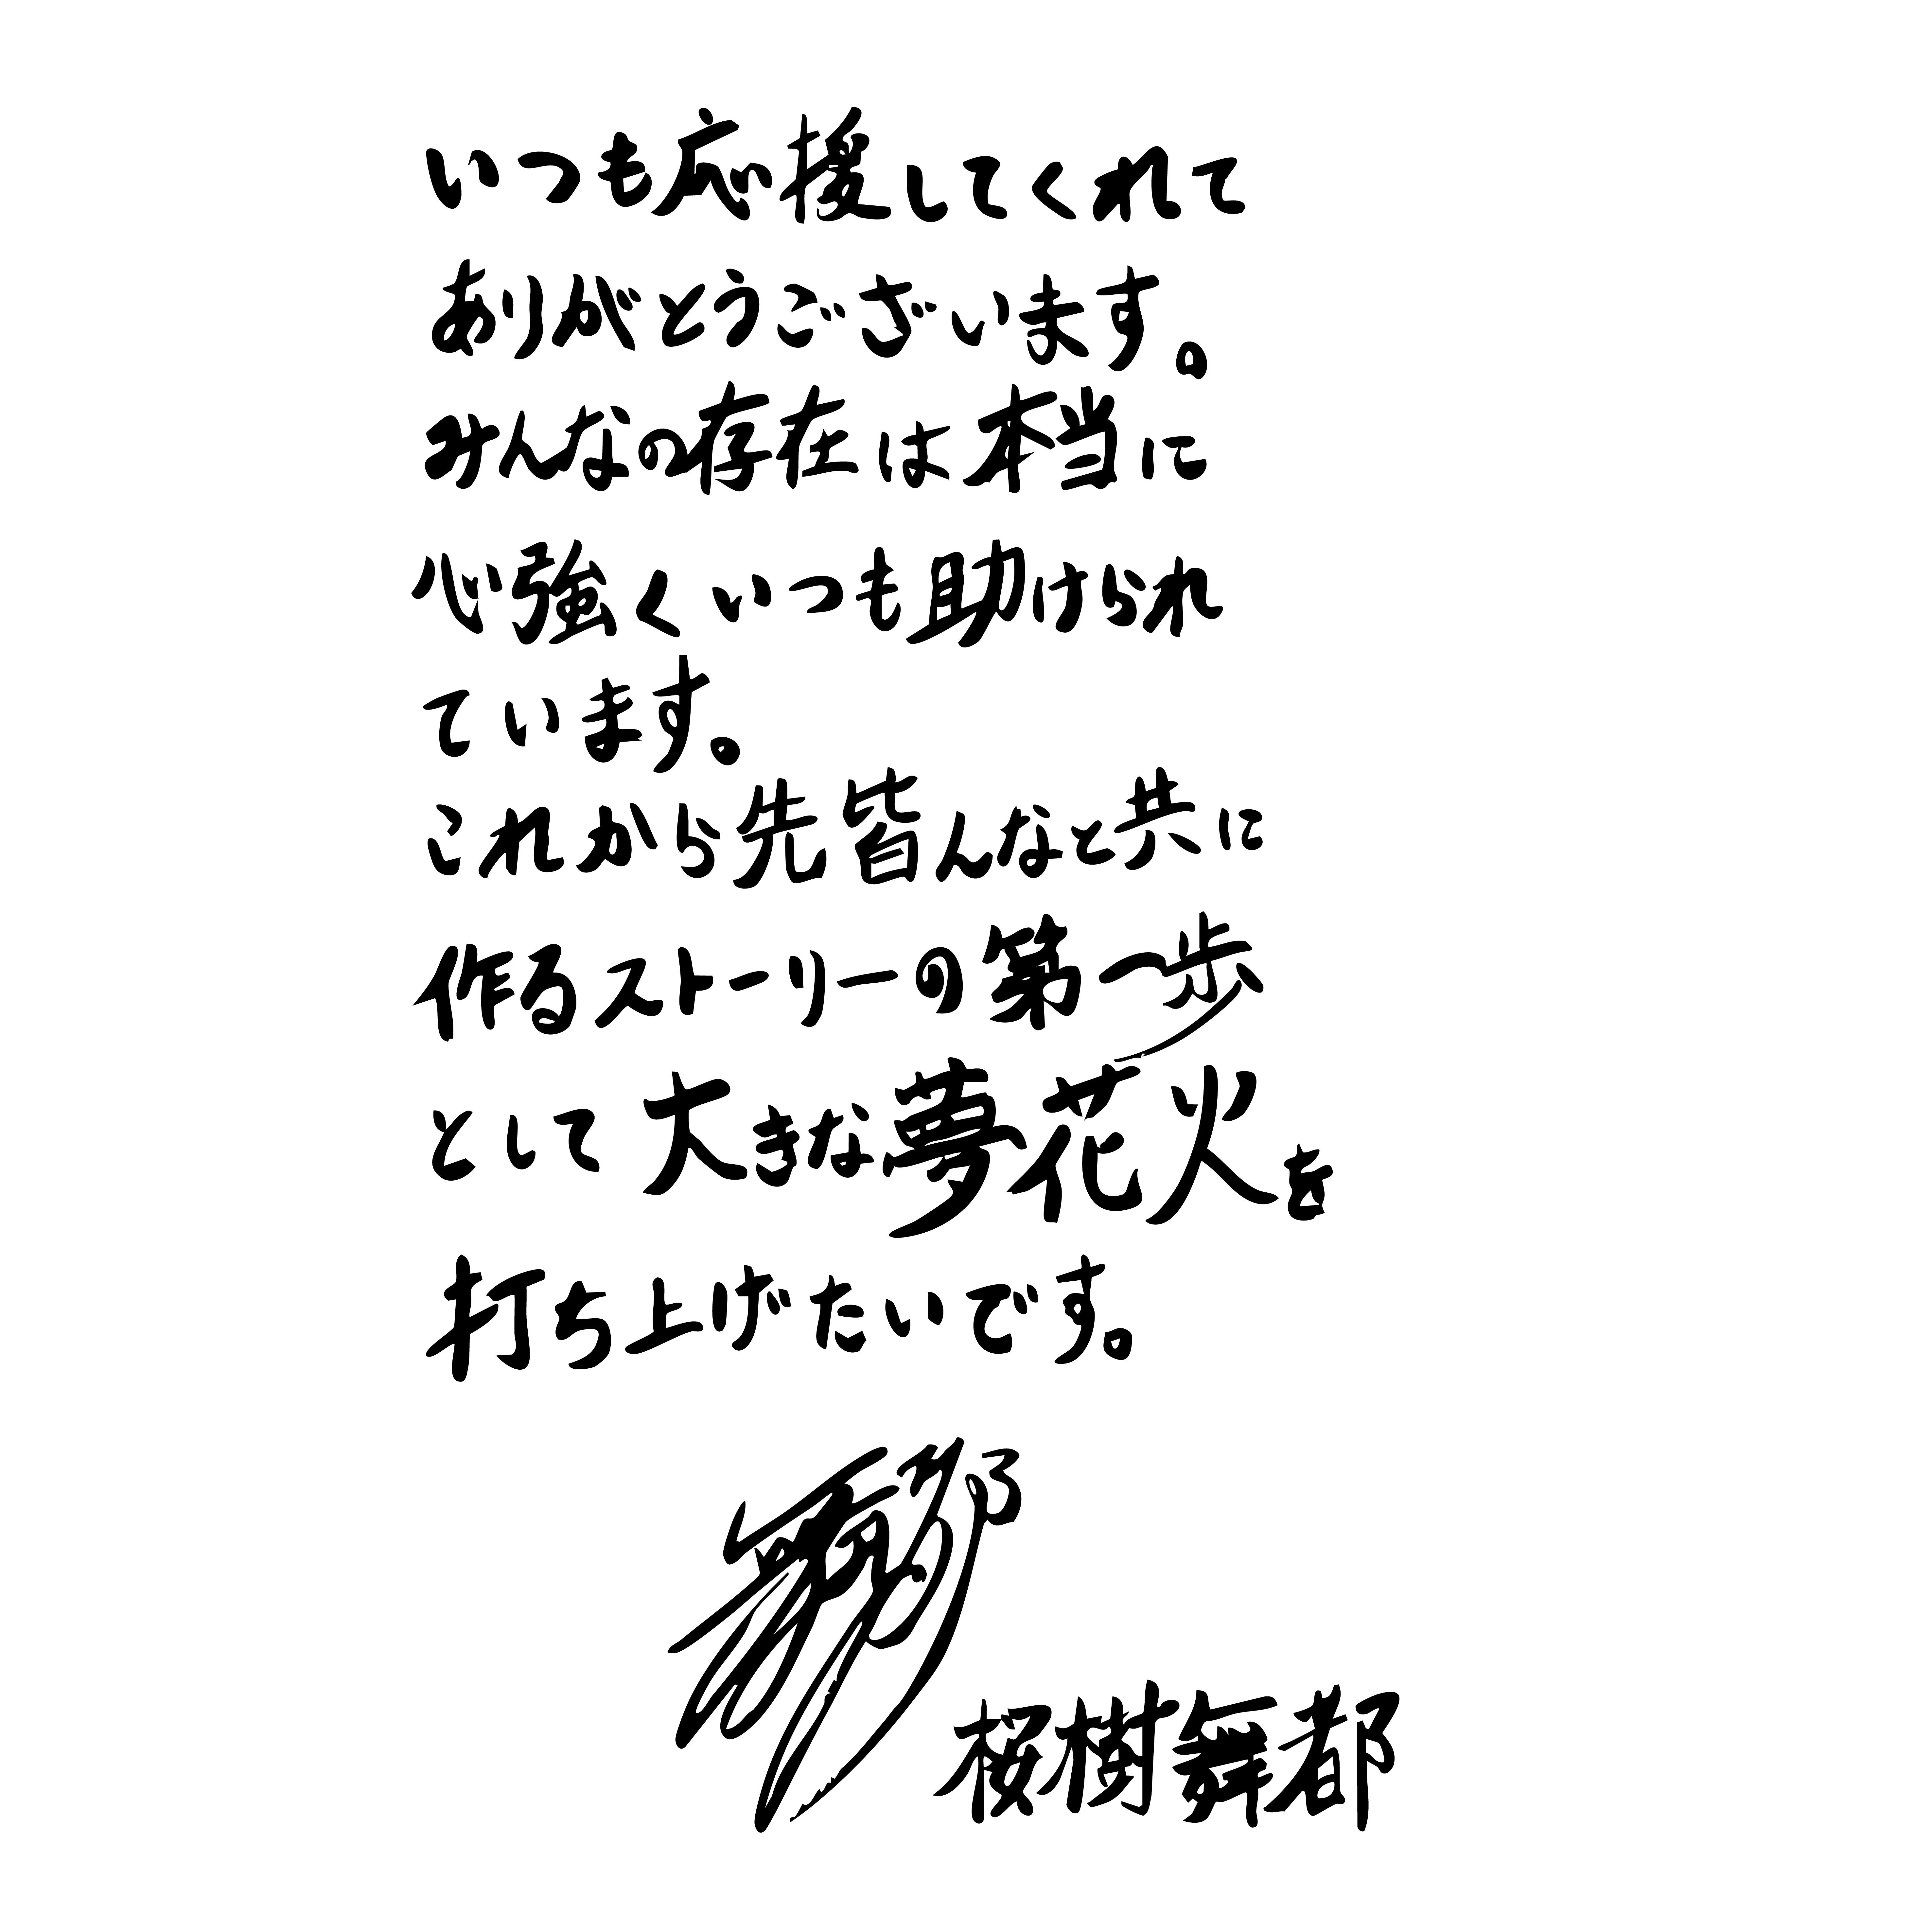 いつも応援してくれて
ありがとうございます。
みんなの存在は本当に
心強くいつも助けられ
ています。
これからも先皆んなと共に
作るストーリーの第一歩
として大きな夢花火を
打ち上げたいです。